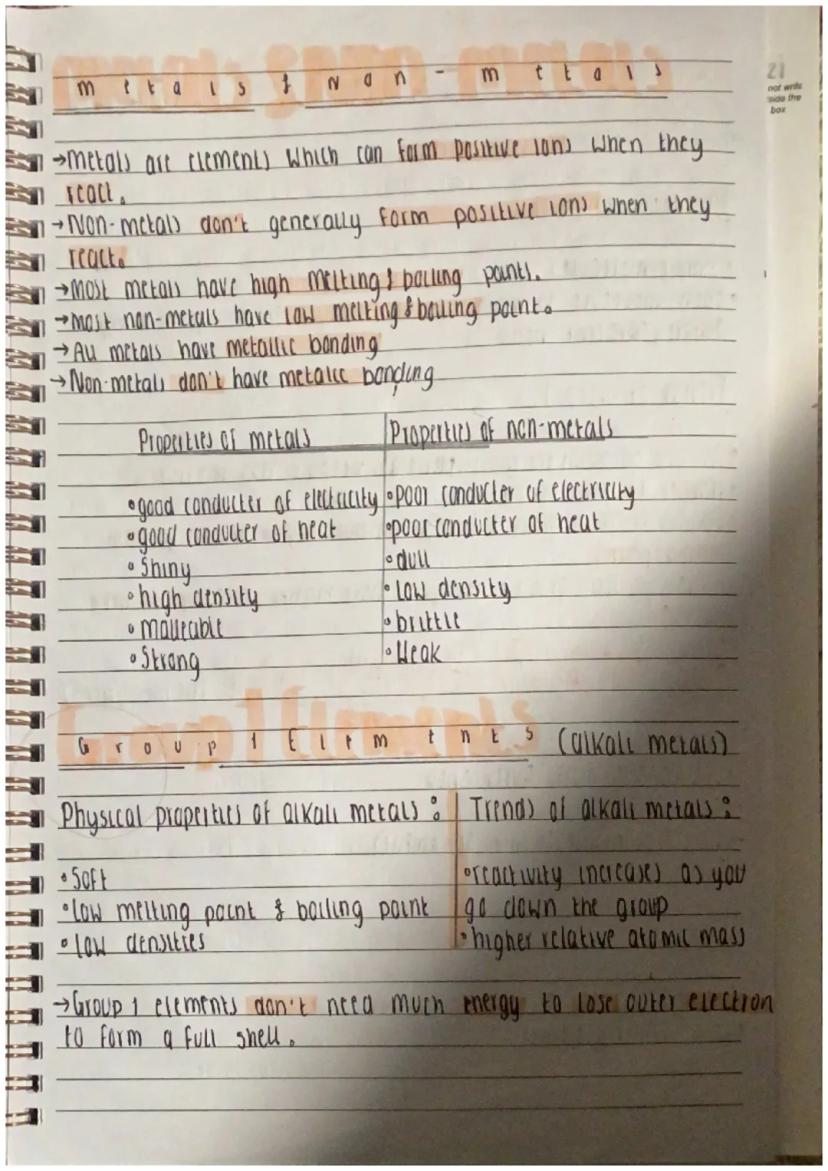 Metals & Non-metals
21
not write
side the
box
→Metals are elements which can form positive ions when they
react.
→Non-metals don't generally form positive ions when they
react.
→Most metals have high melting & boiling points.
→Most non-metals have low melting & boiling point.
→All metals have metallic bonding
→Non-metals don't have metalic bonding
Properties of metals
•good conducter of electricity
•good conducter of heat
•Shiny
•high density
•malleable
•Strong
Properties of non-metals
•poor conducter of electricity
•poor conducter of heat
•dull
•low density
•brittle
•Weak
Group 1 Elements (alkali metals)
Physical properties of alkali metals:
•Soft
•low melting point & boiling point
•low densities
Trends of alkali metals:
•reactivity increases as you
go down the group
•higher relative atomic mass
→Group 1 elements don't need much energy to lose outer electron
to form a full shell.